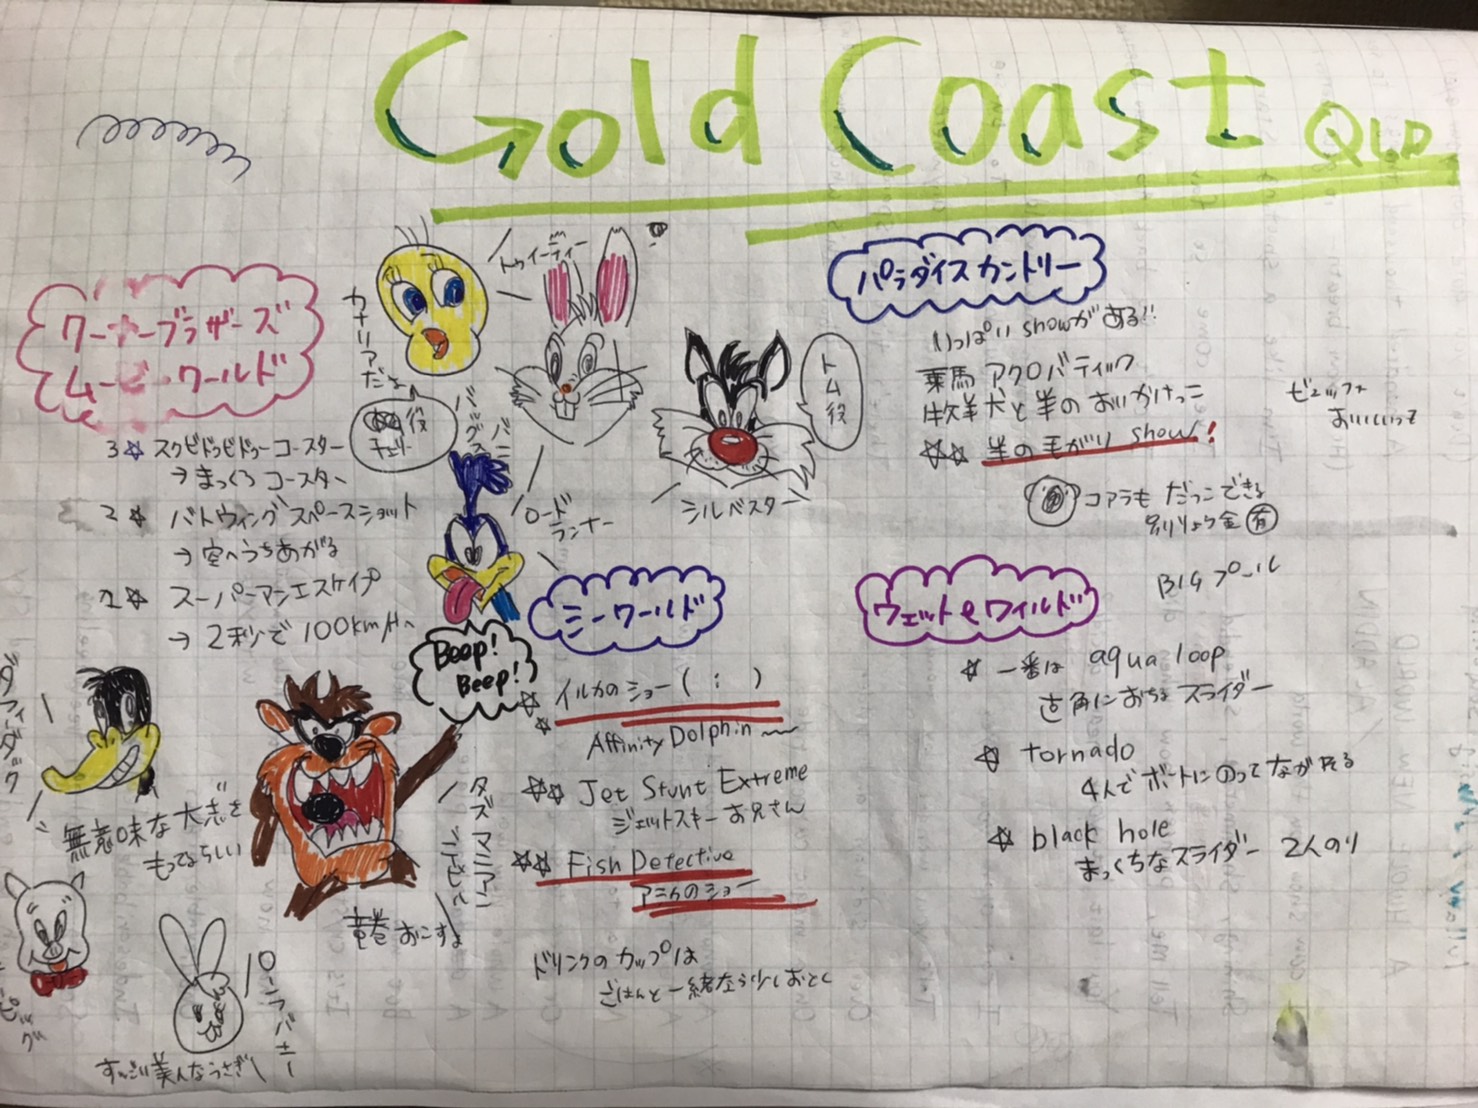 Gold Coast QLD
ワーナーブラザーズ
ムービーワールド
3☆ スクビドゥビドゥーコースター
→ まっくらコースター
2☆ バトウィングスペースショット
→ 空へうちあがる
1☆ スーパーマンエスケイプ
→ 2秒で100km/Hへ
トゥイーティー
カナリアだよ
役
バッグスバニー
トム役
シルベスター
ロード
ランナー
Beep!
Beep!
ダフィーダック
無意味な大志を
もってるらしい
タズマニアンデビル
竜巻おこすよ
ローラバニー
すっごい美人なうさぎ
パラダイスカントリー
いっぱいshowがある!!
乗馬アクロバティック
牧羊犬と羊のおいかけっこ
☆☆ 羊の毛がりshow!
ビュッフェ
おいしいって
コアラもだっこできる
別りょう金有
シーワールド
☆ イルカのショー( : )
☆ Affinity Dolphin
☆☆ Jet Stunt Extreme
ジェットスキーお兄さん
☆☆ Fish Detective
アシカのショー
ドリンクのカップは
ごはんと一緒なら少しおとく
ウェット&ワイルド
BIGプール
☆ 一番は aqua loop
直角におちるスライダー
☆ tornado
4人でボートにのってながれる
☆ black hole
まっくらなスライダー 2人のり